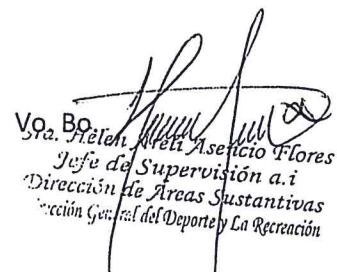 Vo. Bo.
Sra. Helen Areli Asencio Flores
Jefe de Supervisión a.i
Dirección de Areas Sustantivas
Dirección General del Deporte y La Recreación